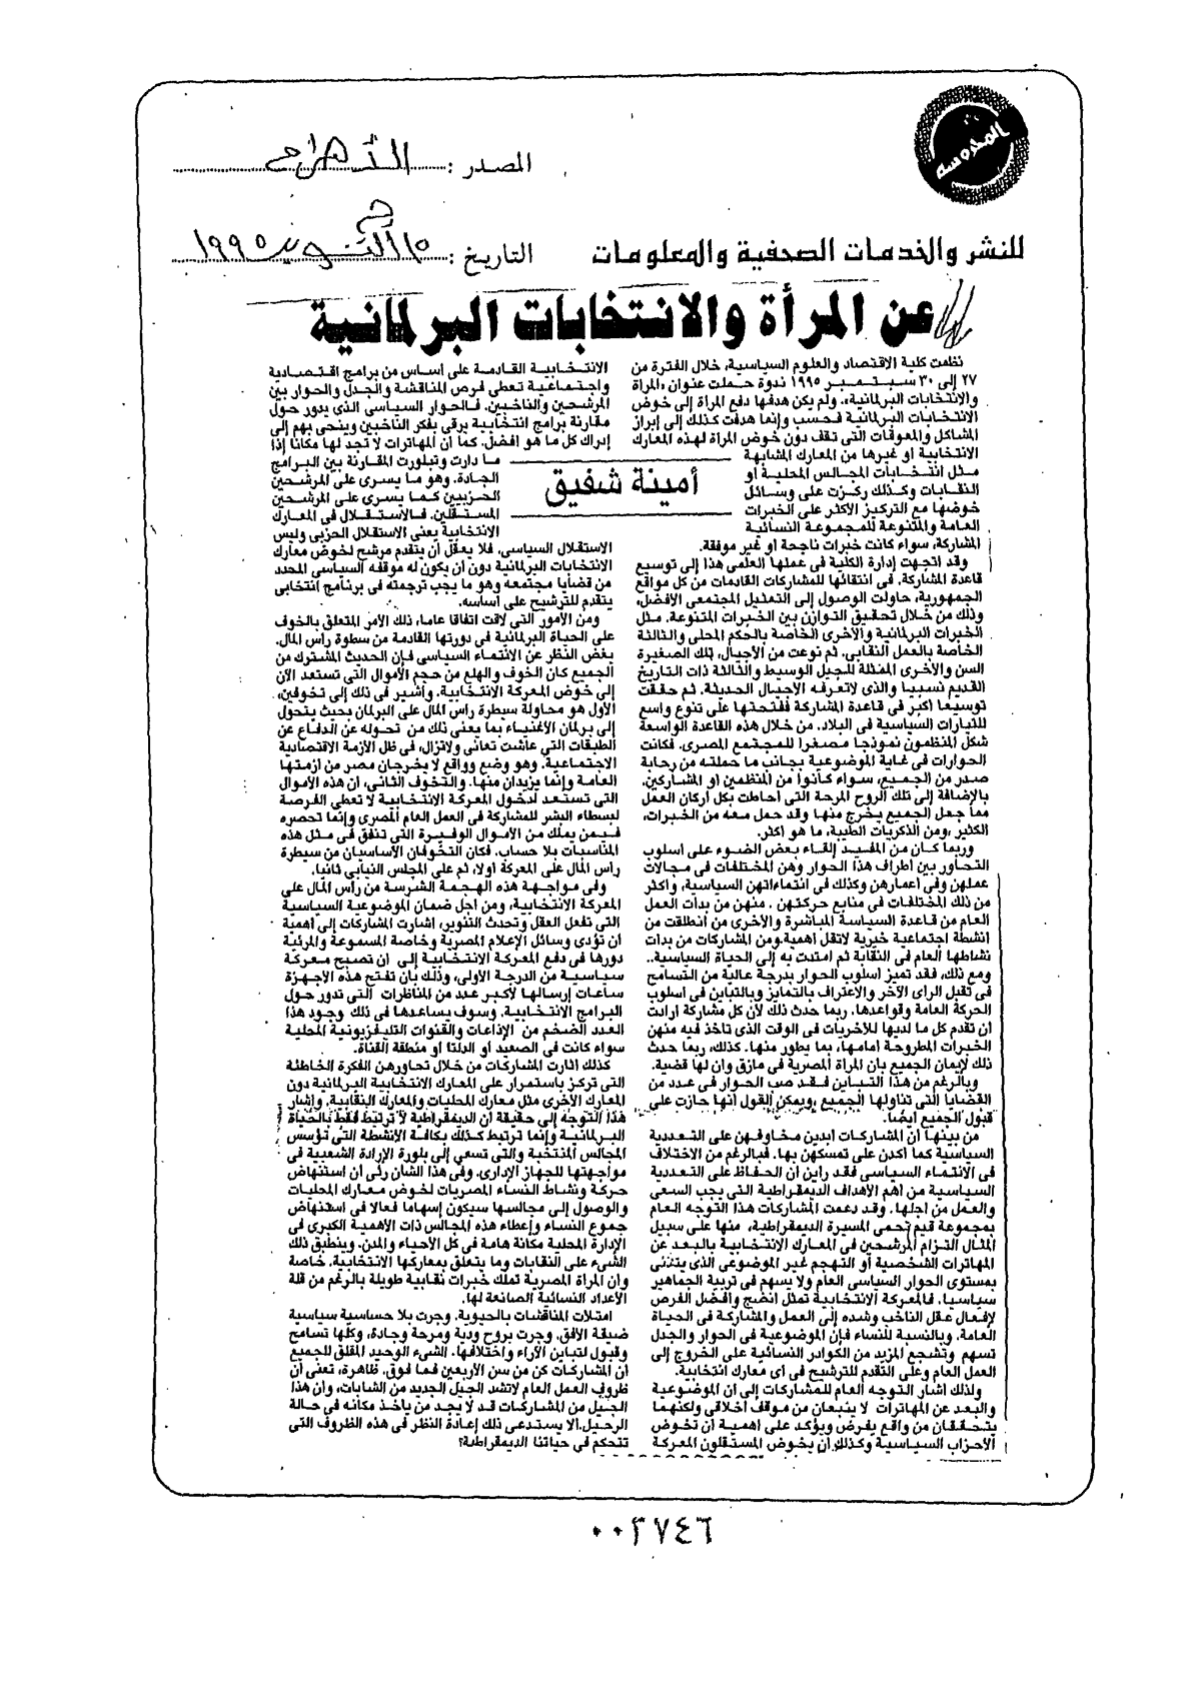 المحروسة
المصدر :
للنشر والخدمات الصحفية والمعلومات
التاريخ : ١٥ ١٩٩٥
عن المرأة والانتخابات البرلمانية
أمينة شفيق
نظمت كلية الاقتصاد والعلوم السياسية، خلال الفترة من
٢٧ إلى ٣٠ سبتمبر ١٩٩٥ ندوة حملت عنوان «المرأة
والانتخابات البرلمانية»، ولم يكن هدفها دفع المرأة إلى خوض
الانتخابات البرلمانية فحسب وإنما هدفت كذلك إلى إبراز
المشاكل والمعوقات التى تقف دون خوض المرأة لهذه المعارك
الانتخابية او غيرها من المعارك المشابهة
مثل انتخابات المجالس المحلية او
النقابات وكذلك ركزت على وسائل
خوضها مع التركيز الأكثر على الخبرات
العامة والمتنوعة للمجموعة النسائية
المشاركة، سواء كانت خبرات ناجحة او غير موفقة.
وقد اتجهت إدارة الكلية فى عملها العلمى هذا إلى توسيع
قاعدة المشاركة. فى انتقائها للمشاركات القادمات من كل مواقع
الجمهورية، حاولت الوصول إلى التمثيل المجتمعى الأفضل،
وذلك من خلال تحقيق التوازن بين الخبرات المتنوعة. مثل
الخبرات البرلمانية والأخرى الخاصة بالحكم المحلى والثالثة
الخاصة بالعمل النقابى. ثم نوعت من الأجيال، تلك الصغيرة
السن والأخرى الممثلة للجيل الوسيط والثالثة ذات التاريخ
القديم نسبيا والذى لاتعرفه الأجيال الحديثة. ثم حققت
توسيعا أكبر فى قاعدة المشاركة ففتحتها على تنوع واسع
للتيارات السياسية فى البلاد. من خلال هذه القاعدة الواسعة
شكل المنظمون نموذجا مصغرا للمجتمع المصرى. فكانت
الحوارات فى غاية الموضوعية بجانب ما حملته من رحابة
صدر من الجميع، سواء كانوا من المنظمين او المشاركين.
بالإضافة إلى تلك الروح المرحة التى أحاطت بكل أركان العمل
مما جعل الجميع يخرج منها وقد حمل معه من الخبرات،
الكثير ،ومن الذكريات الطيبة، ما هو أكثر.
وربما كان من المفيد إلقاء بعض الضوء على اسلوب
التحاور بين أطراف هذا الحوار وهن المختلفات فى مجالات
عملهن وفى أعمارهن وكذلك فى انتماءاتهن السياسية، واكثر
من ذلك المختلفات فى منابع حركتهن . منهن من بدأت العمل
العام من قاعدة السياسة المباشرة والأخرى من أنطلقت من
أنشطة اجتماعية خيرية لاتقل أهمية.ومن المشاركات من بدأت
نشاطها العام فى النقابة ثم امتدت به إلى الحياة السياسية..
ومع ذلك، فقد تميز اسلوب الحوار بدرجة عالية من التسامح
فى تقبل الرأى الآخر والاعتراف بالتمايز وبالتباين فى اسلوب
الحركة العامة وقواعدها. ربما حدث ذلك لأن كل مشاركة أرادت
ان تقدم كل ما لديها للأخريات فى الوقت الذى تأخذ فيه منهن
الخبرات المطروحة أمامها، بما يطور منها. كذلك، ربما حدث
ذلك لإيمان الجميع بان المرأة المصرية فى مازق وان لها قضية.
وبالرغم من هذا التباين فقد صب الحوار فى عدد من
القضايا التى تناولها الجميع ،ويمكن القول انها حازت على
قبول الجميع أيضا.
من بينها أن المشاركات ابدين مخاوفهن على التعددية
السياسية كما اكدن على تمسكهن بها. فبالرغم من الاختلاف
فى الانتماء السياسى فقد راين ان الحفاظ على التعددية
السياسية من أهم الأهداف الديمقراطية التى يجب السعى
والعمل من أجلها. وقد دعمت المشاركات هذا التوجه العام
بمجموعة قيم تحمى المسيرة الديمقراطية، منها على سبيل
المثال التزام المرشحين فى المعارك الانتخابية بالبعد عن
المهاترات الشخصية أو التهجم غير الموضوعى الذى يتدنى
بمستوى الحوار السياسى العام ولا يسهم فى تربية الجماهير
سياسيا. فالمعركة الانتخابية تمثل انضج وأفضل الفرص
لإفعال عقل الناخب وشده إلى العمل والمشاركة فى الحياة
العامة. وبالنسبة للنساء فإن الموضوعية فى الحوار والجدل
تسهم وتشجع المزيد من الكوادر النسائية على الخروج إلى
العمل العام وعلى التقدم للترشيح فى أى معارك انتخابية.
ولذلك اشار التوجه العام للمشاركات إلى ان الموضوعية
والبعد عن المهاترات لا ينبعان من موقف أخلاقى ولكنهما
يتحققان من واقع يفرض ويؤكد على اهمية ان تخوض
الأحزاب السياسية وكذلك أن يخوض المستقلون المعركة
الانتخابية القادمة على أساس من برامج اقتصادية
واجتماعية تعطى فرص المناقشة والجدل والحوار بين
المرشحين والناخبين. فالحوار السياسى الذى يدور حول
مقارنة برامج انتخابية يرقى بفكر الناخبين وينحى بهم إلى
إدراك كل ما هو افضل. كما ان المهاترات لا تجد لها مكانا إذا
ما دارت وتبلورت المقارنة بين البرامج
الجادة. وهو ما يسرى على المرشحين
الحزبيين كما يسرى على المرشحين
المستقلين. فالاستقلال فى المعارك
الانتخابية يعنى الاستقلال الحزبى وليس
الاستقلال السياسى. فلا يعقل أن يتقدم مرشح لخوض معارك
الانتخابات البرلمانية دون أن يكون له موقفه السياسى المحدد
من قضايا مجتمعه وهو ما يجب ترجمته فى برنامج انتخابى
يتقدم للترشيح على أساسه.
ومن الأمور التى لاقت اتفاقا عاما، ذلك الأمر المتعلق بالخوف
على الحياة البرلمانية فى دورتها القادمة من سطوة رأس المال.
بغض النظر عن الانتماء السياسى فإن الحديث المشترك من
الجميع كان الخوف والهلع من حجم الأموال التى تستعد الآن
إلى خوض المعركة الانتخابية. وأشير فى ذلك إلى تخوفين،
الأول هو محاولة سيطرة رأس المال على البرلمان بحيث يتحول
إلى برلمان الأغنياء بما يعنى ذلك من تحوله عن الدفاع عن
الطبقات التى عاشت تعانى ولاتزال، فى ظل الأزمة الاقتصادية
الاجتماعية. وهو وضع وواقع لا يخرجان مصر من أزمتها
العامة وإنما يزيدان منها. والتخوف الثانى، ان هذه الأموال
التى تستعد لدخول المعركة الانتخابية لا تعطى الفرصة
لبسطاء البشر للمشاركة فى العمل العام المصرى وإنما تحصره
فيمن يملك من الأموال الوفيرة التى تنفق فى مثل هذه
المناسبات بلا حساب. فكان التخوفان الأساسيان من سيطرة
رأس المال على المعركة أولا، ثم على المجلس النيابى ثانيا.
وفى مواجهة هذه الهجمة الشرسة من رأس المال على
المعركة الانتخابية، ومن أجل ضمان الموضوعية السياسية
التى تفعل العقل وتحدث التنوير، اشارت المشاركات إلى أهمية
ان تؤدى وسائل الإعلام المصرية وخاصة المسموعة والمرئية
دورها فى دفع المعركة الانتخابية إلى ان تصبح معركة
سياسية من الدرجة الأولى، وذلك بأن تفتح هذه الأجهزة
ساعات إرسالها لأكبر عدد من المناظرات التى تدور حول
البرامج الانتخابية. وسوف يساعدها فى ذلك وجود هذا
العدد الضخم من الإذاعات والقنوات التليفزيونية المحلية
سواء كانت فى الصعيد او الدلتا او منطقة القناة.
كذلك اثارت المشاركات من خلال تحاورهن الفكرة الخاطئة
التى تركز باستمرار على المعارك الانتخابية البرلمانية دون
المعارك الأخرى مثل معارك المحليات والمعارك النقابية. وأشار
هذا التوجه إلى حقيقة أن الديمقراطية لا ترتبط فقط بالحياة
البرلمانية وإنما ترتبط كذلك بكافة الأنشطة التى تؤسس
المجالس المنتخبة والتى تسعى إلى بلورة الإرادة الشعبية فى
مواجهتها للجهاز الإدارى. وفى هذا الشأن رئى أن استنهاض
حركة ونشاط النساء المصريات لخوض معارك المحليات
والوصول إلى مجالسها سيكون إسهاما فعالا فى استنهاض
جموع النساء وإعطاء هذه المجالس ذات الأهمية الكبرى فى
الإدارة المحلية مكانة هامة فى كل الأحياء والمدن. وينطبق ذلك
الشىء على النقابات وما يتعلق بمعاركها الانتخابية. خاصة
وان المرأة المصرية تملك خبرات نقابية طويلة بالرغم من قلة
الأعداد النسائية الصانعة لها.
امتلات المناقشات بالحيوية. وجرت بلا حساسية سياسية
ضيقة الأفق. وجرت بروح ودية ومرحة وجادة، وكلها تسامح
وقبول لتباين الآراء واختلافها. الشىء الوحيد المقلق للجميع
أن المشاركات كن من سن الأربعين فما فوق. ظاهرة، تعنى أن
ظروف العمل العام لاتشد الجيل الجديد من الشابات، وان هذا
الجيل من المشاركات قد لا يجد من يأخذ مكانه فى حالة
الرحيل.ألا يستدعى ذلك إعادة النظر فى هذه الظروف التى
تتحكم فى حياتنا الديمقراطية؟
٠٠٣٧٤٦